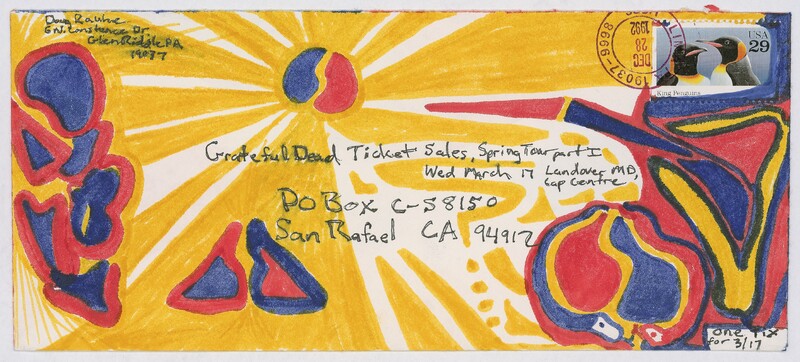 Doug
Dr.
Glen Riddle PA
19037
19037-9998
DEC
28
1992
USA
29
King Penguins
Grateful Dead Ticket Sales, Spring Tour part I
Wed March 17 Landover MD,
Cap Centre
PO Box C-S8150
San Rafael CA 94912
one tix
for 3/17